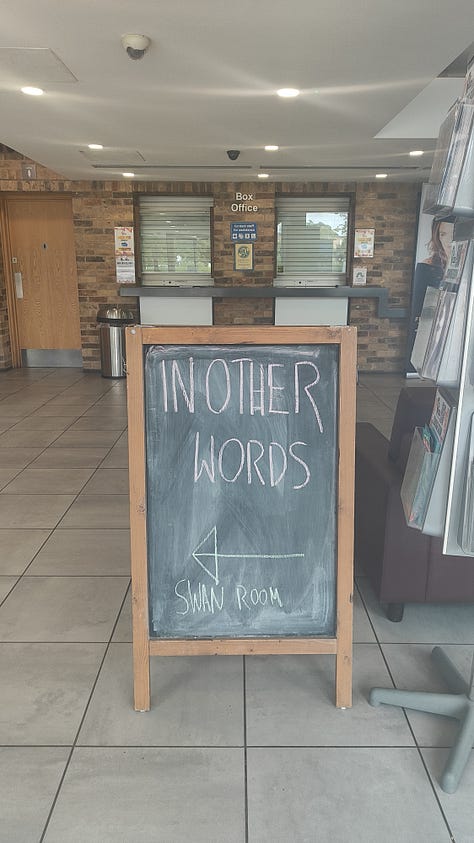 Box
Office
IN OTHER
WORDS
SWAN ROOM